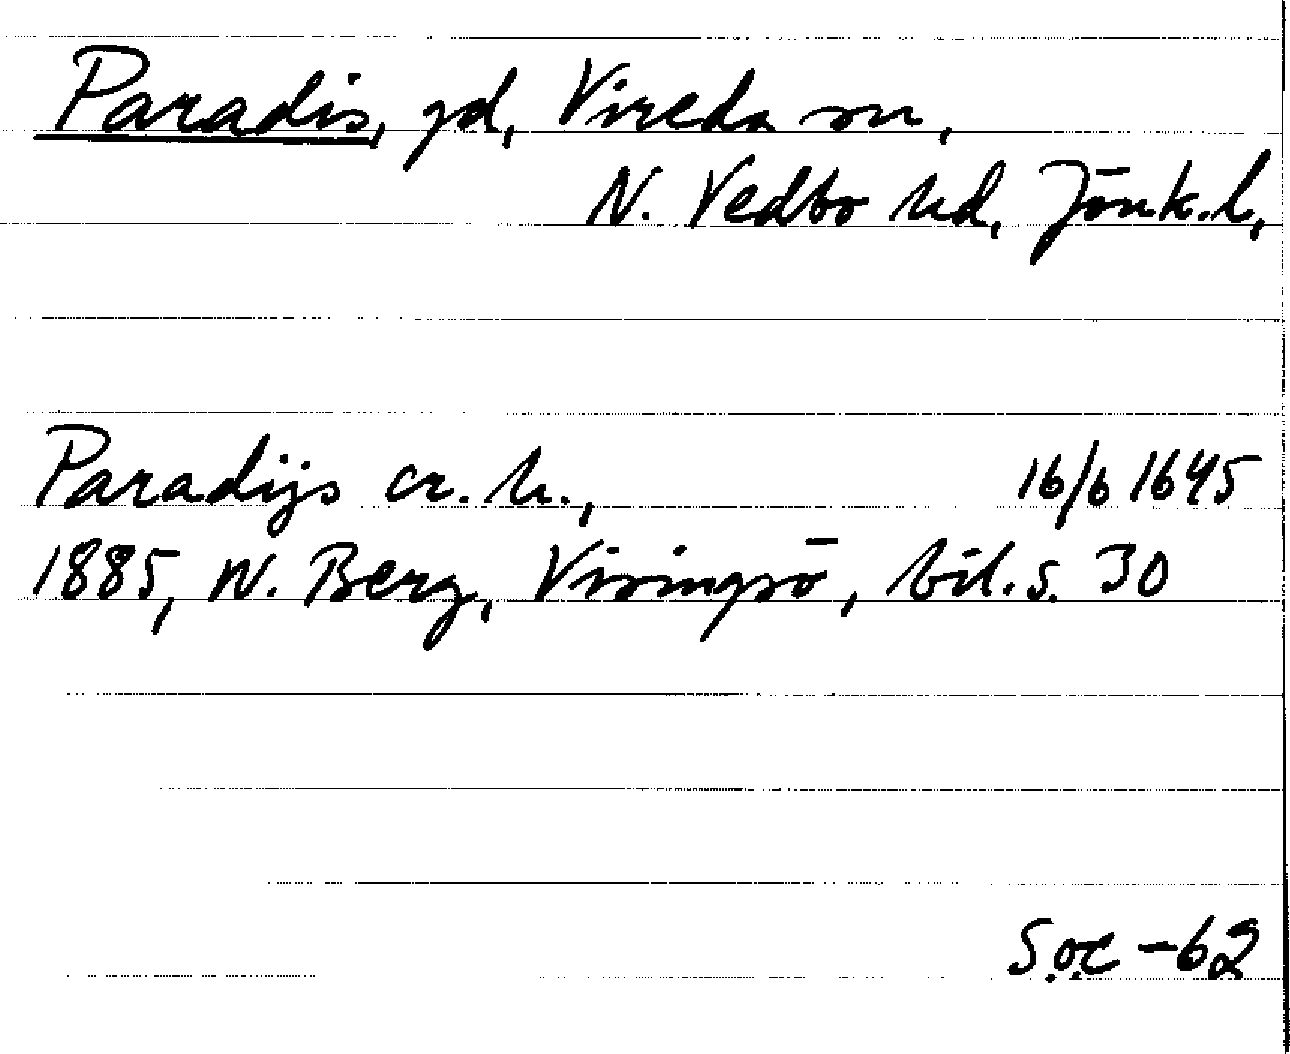 Paradis, gd, Vireda sn,
N. Vedbo hd, Jönk. l,
Paradijs cr. h., 16/6 1645
1885, W. Berg, Visingsö, bil. s. 30
S.o.c -62